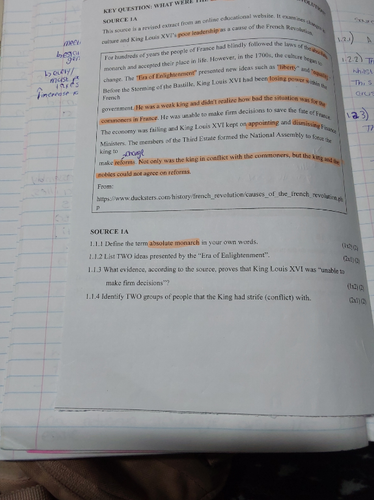 KEY QUESTION: WHAT WERE THE
SOURCE 1A
This source is a revised extract from an online educational website. It examines
culture and King Louis XVI's poor leadership as a cause of the French Revolution.
For hundreds of years the people of France had blindly followed the laws of the
monarch and accepted their place in life. However, in the 1700s, the culture began to
change. The "Era of Enlightenment" presented new ideas such as "liberty" and "equality".
Before the Storming of the Bastille, King Louis XVI had been losing power within the
French
government. He was a weak king and didn't realize how bad the situation was for the
commoners in France. He was unable to make firm decisions to save the fate of France.
The economy was failing and King Louis XVI kept on appointing and dismissing
Ministers. The members of the Third Estate formed the National Assembly to force the
king to
make reforms. Not only was the king in conflict with the commoners, but the king and the
nobles could not agree on reforms.
From:
https://www.ducksters.com/history/french_revolution/causes_of_the_french_revolution.ph
p
SOURCE 1A
1.1.1 Define the term absolute monarch in your own words. (1x2) (2)
1.1.2 List TWO ideas presented by the "Era of Enlightenment". (2x1) (2)
1.1.3 What evidence, according to the source, proves that King Louis XVI was "unable to
make firm decisions"? (1x2) (2)
1.1.4 Identify TWO groups of people that the King had strife (conflict) with. (2x1) (2)